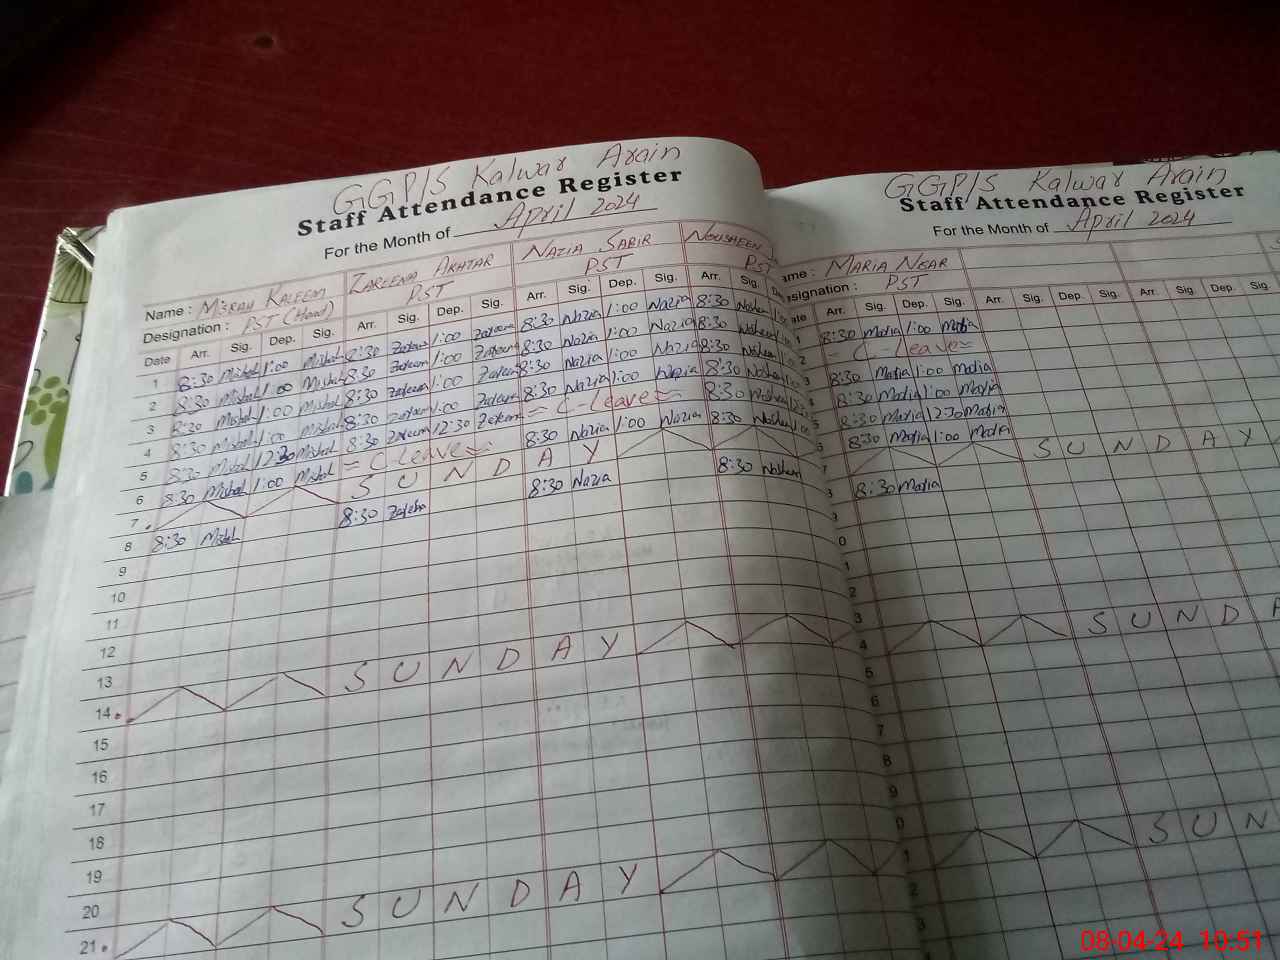 GGP/S Kalwar Arain
Staff Attendance Register
For the Month of April 2024
Name : Misbah Kaleem Zareena Akhtar Nazia Sabir Nousheen
Designation : PST (Head) PST PST PST
Date Arr. Sig. Dep. Sig. Arr. Sig. Dep. Sig. Arr. Sig. Dep. Sig. Arr. Sig.
1 8:30 Misbah 1:00 Misbah 8:30 Zareena 1:00 Zareena 8:30 Nazia 1:00 Nazia 8:30 Nosheen
2 8:30 Misbah 1:00 Misbah 8:30 Zareena 1:00 Zareena 8:30 Nazia 1:00 Nazia 8:30 Nosheen
3 8:30 Misbah 1:00 Misbah 8:30 Zareena 1:00 Zareena 8:30 Nazia 1:00 Nazia 8:30 Nosheen
4 8:30 Misbah 1:00 Misbah 8:30 Zareena 1:00 Zareena 8:30 Nazia 1:00 Nazia 8:30 Nosheen
5 8:30 Misbah 12:30 Misbah 8:30 Zareena 12:30 Zareena = C-Leave = 8:30 Nosheen
6 8:30 Misbah 1:00 Misbah = C Leave = 8:30 Nazia 1:00 Nazia 8:30 Nosheen
7 SUNDAY
8 8:30 Misbah 8:30 Zareena 8:30 Nazia 8:30 Nosheen
9
10
11
12
13
14 SUNDAY
15
16
17
18
19
20
21 SUNDAY
GGP/S Kalwar Arain
Staff Attendance Register
For the Month of April 2024
ame : Maria Near
esignation : PST
ate Arr. Sig. Dep. Sig. Arr. Sig. Dep. Sig. Arr. Sig. Dep. Sig.
1 8:30 Maria 1:00 Maria
2 = C-Leave =
3 8:30 Maria 1:00 Maria
4 8:30 Maria 1:00 Maria
5 8:30 Maria 12:30 Maria
6 8:30 Maria 1:00 Maria
7 SUNDAY
8 8:30 Maria
9
0
1
2
3
4 SUNDA
5
6
7
8
9
0
1 SUN
2
3
08-04-24 10:51